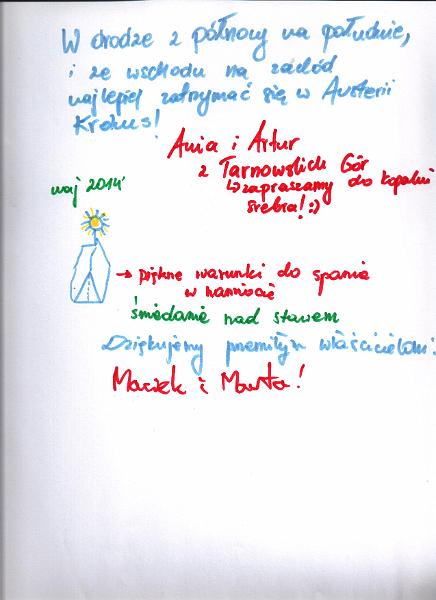 W drodze z północy na południe,
i ze wschodu na zachód
najlepiej zatrzymać się w Austerii
Krokus!
Ania i Artur
z Tarnowskich Gór
↳ zapraszamy do kopalni
srebra! :)
maj 2014
→ piękne warunki do spania
w namiocie
śniadanie nad stawem
Dziękujemy przemiłym właścicielom:
Maciek i Marta!